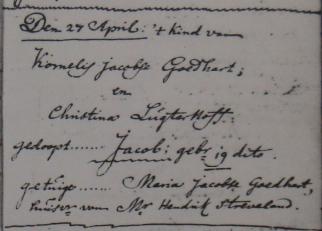 Den 27 April: 't kind van
Kornelis Jacobse Goedhart;
en
Christina Ligterhoff:
gedoopt....... Jacob; gebr 19 dito.
getuige....... Maria Jacobse Goedhart,
huisvr van Mr Hendrik Streveland.